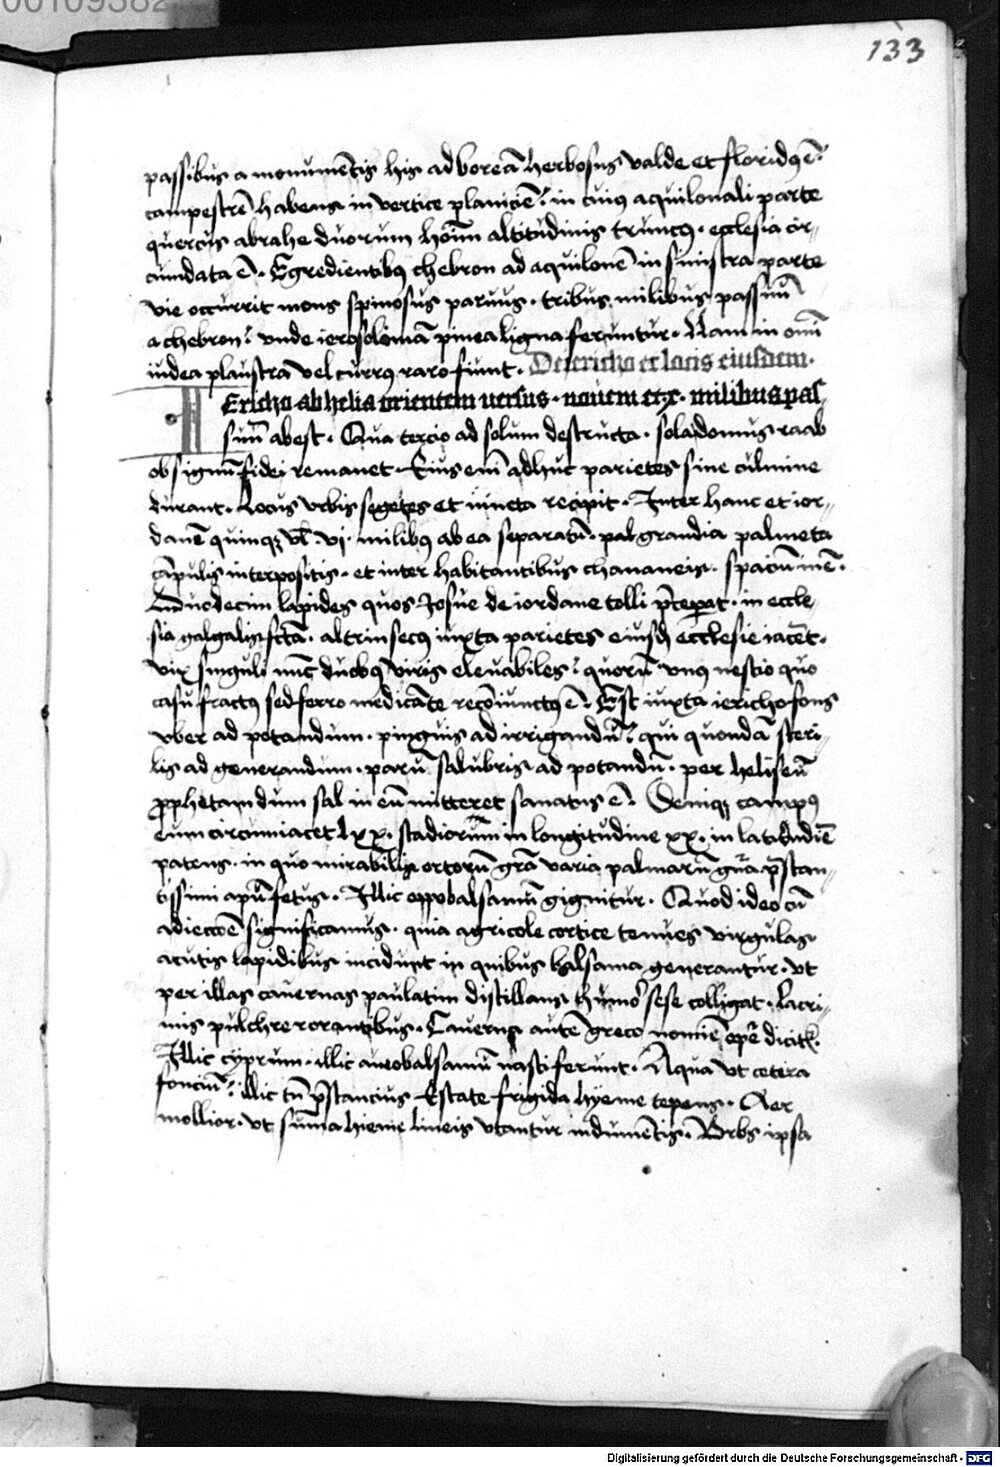 00109382
133
passibus a monumētis his ad boreā herbosus valde et floridꝰ ē.
campestrē habens in vertice planiciē. in cuiꝰ aquilonali parte
quercus abrahe duorum hoīm altitudinis truncꝰ. ecclesia cir-
cumdata ē. Egredientibꝰ chebron ad aquilonē in sinistra parte
vie occurrit mons spinosus paruus. tribus milibus passuū
a chebron. vnde ierosolimā pinea ligna feruntur. Nam in omī
iudea plaustra vel currus raro fiunt. De iericho et locis eiusdem.
IEricho ab helia orientem uersus. nouem et x. milibus pas-
suū abest. Qua tercio ad solum destructa. sola domus raab
ob signū fidei remanet. Eius enī adhuc parietes sine culmine
durant. Locus vrbis segetes et iuncta recipit. Inter hanc et ior-
danē quinqꝫ vl. vi. milibꝰ ab ea separatū. grandia palmeta
cāpulis interpositis. et inter habitantibus chananeis. spaciū inē.
Duodecim lapides quos Josue de iordane tolli p̄ceperat. in eccle-
sia galgalis fctā. altrinsecꝰ iuxta parietes eiusd ecclesie iacēt.
vix singuli nūc duobꝰ viris eleuabiles. quorū vnꝰ nescio quo
casu fractꝰ sed ferro medicāte recōiunctꝰ ē. Est iuxta iericho fons
vber ad potandum. pinguis ad irrigandū. qui quondā steri-
lis ad generandum. parū salubris ad potandū. per heliseū
prophetam dum sal in eū mitteret sanatus ē. Deniqꝫ campꝰ
eum circumiacet lxx. stadiorūm in longitudine xx. in latitudīe
patens. in quo mirabilis ortorū grā varia palmarū gn̄a p̄stan-
tissimi apū fetus. Illic oppobalsamū gignitur. Quod ideo cū
adieccōe significamus. quia agricole cortice tenues virgulas
acutis lapidibus incidunt in quibus balsama generantur. vt
per illas cauernas paulatim distillans humor sese colligat. lacri-
mis pulchre rorantibus. Cauerna autē greco nomīe ope dicitꝛ.
Illic cyprum. illic mirobalsamū nasci ferunt. Aqua vt cetera
fonciū. illic tn̄ p̄stancius Estate frigida hyeme tepens. Aer
mollior. vt suma hieme lineis vtantur indumētis. Vrbs ipsa
Digitalisierung gefördert durch die Deutsche Forschungsgemeinschaft - DFG